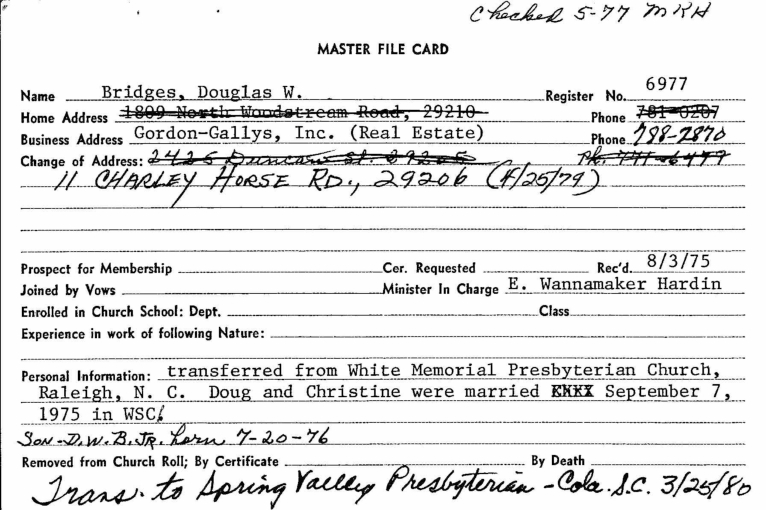 Checked 5-77 MRH
MASTER FILE CARD
Name Bridges, Douglas W. Register No. 6977
Home Address 1809 North Woodstream Road, 29210 Phone 781-0207
Business Address Gordon-Gallys, Inc. (Real Estate) Phone 788-2870
Change of Address: 2425 Duncan St. 29205 Ph. 771-6477
11 CHARLEY HORSE RD., 29206 (4/25/79)
Prospect for Membership Cer. Requested Rec'd. 8/3/75
Joined by Vows Minister In Charge E. Wannamaker Hardin
Enrolled in Church School: Dept. Class
Experience in work of following Nature:
Personal Information: transferred from White Memorial Presbyterian Church,
Raleigh, N. C. Doug and Christine were married September 7,
1975 in WSC.
SON - D.W.B. JR. born 7-20-76
Removed from Church Roll; By Certificate By Death
Trans. to Spring Valley Presbyterian - Cola. S.C. 3/25/80